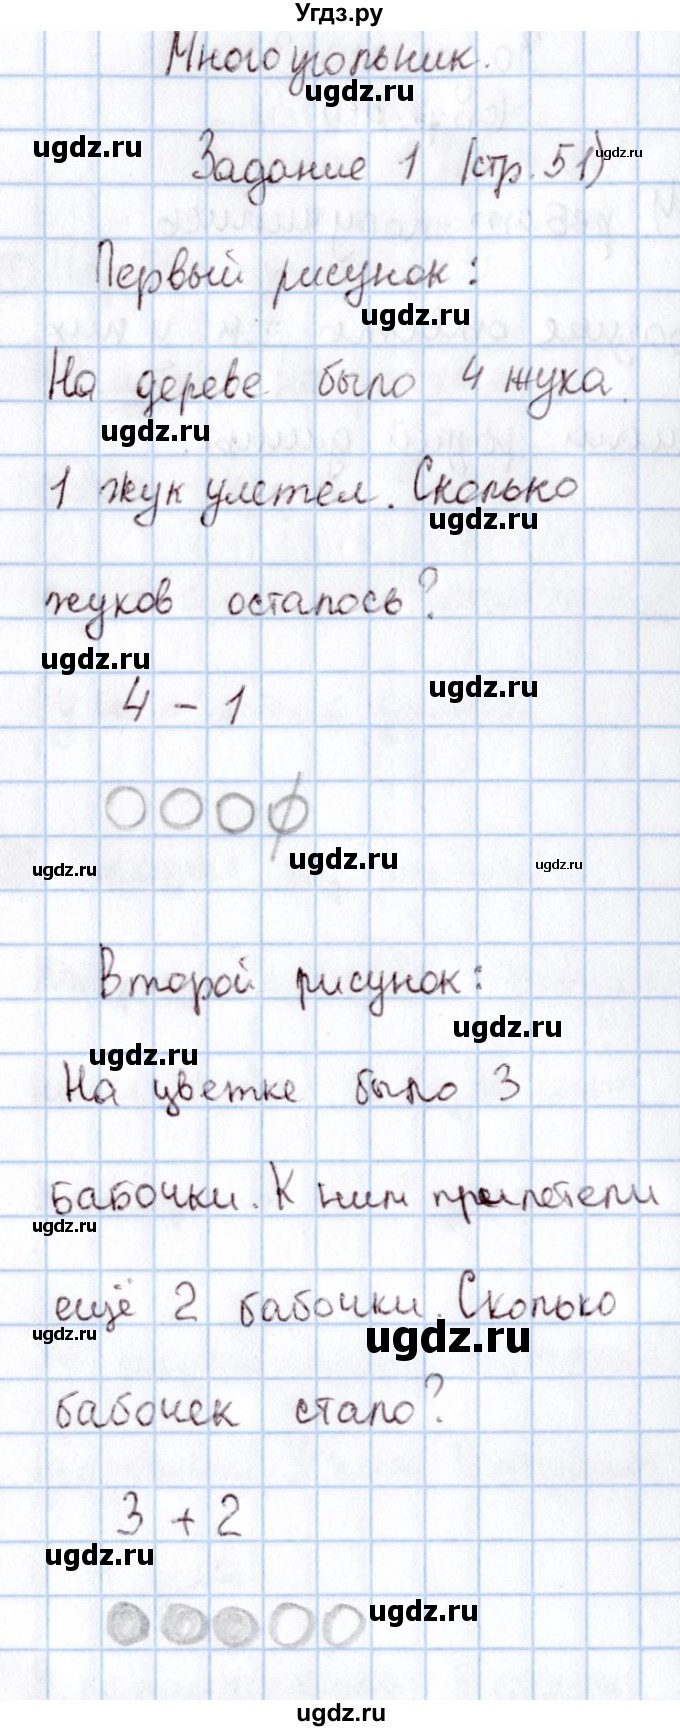 Угдз.ру
Многоугольник.
ugdz.ru
ugdz.ru
Задание 1 (стр. 51)
ugdz.ru
Первый рисунок:
ugdz.ru
На дереве было 4 жука.
ugdz.ru
1 жук улетел. Сколько
ugdz.ru
жуков осталось?
ugdz.ru
ugdz.ru
4 - 1
ugdz.ru
ugdz.ru
ugdz.ru
Второй рисунок:
ugdz.ru
ugdz.ru
На цветке было 3
бабочки. К ним прилетели
ugdz.ru
ещё 2 бабочки. Сколько
ugdz.ru
ugdz.ru
бабочек стало?
3 + 2
ugdz.ru
ugdz.ru
ugdz.ru